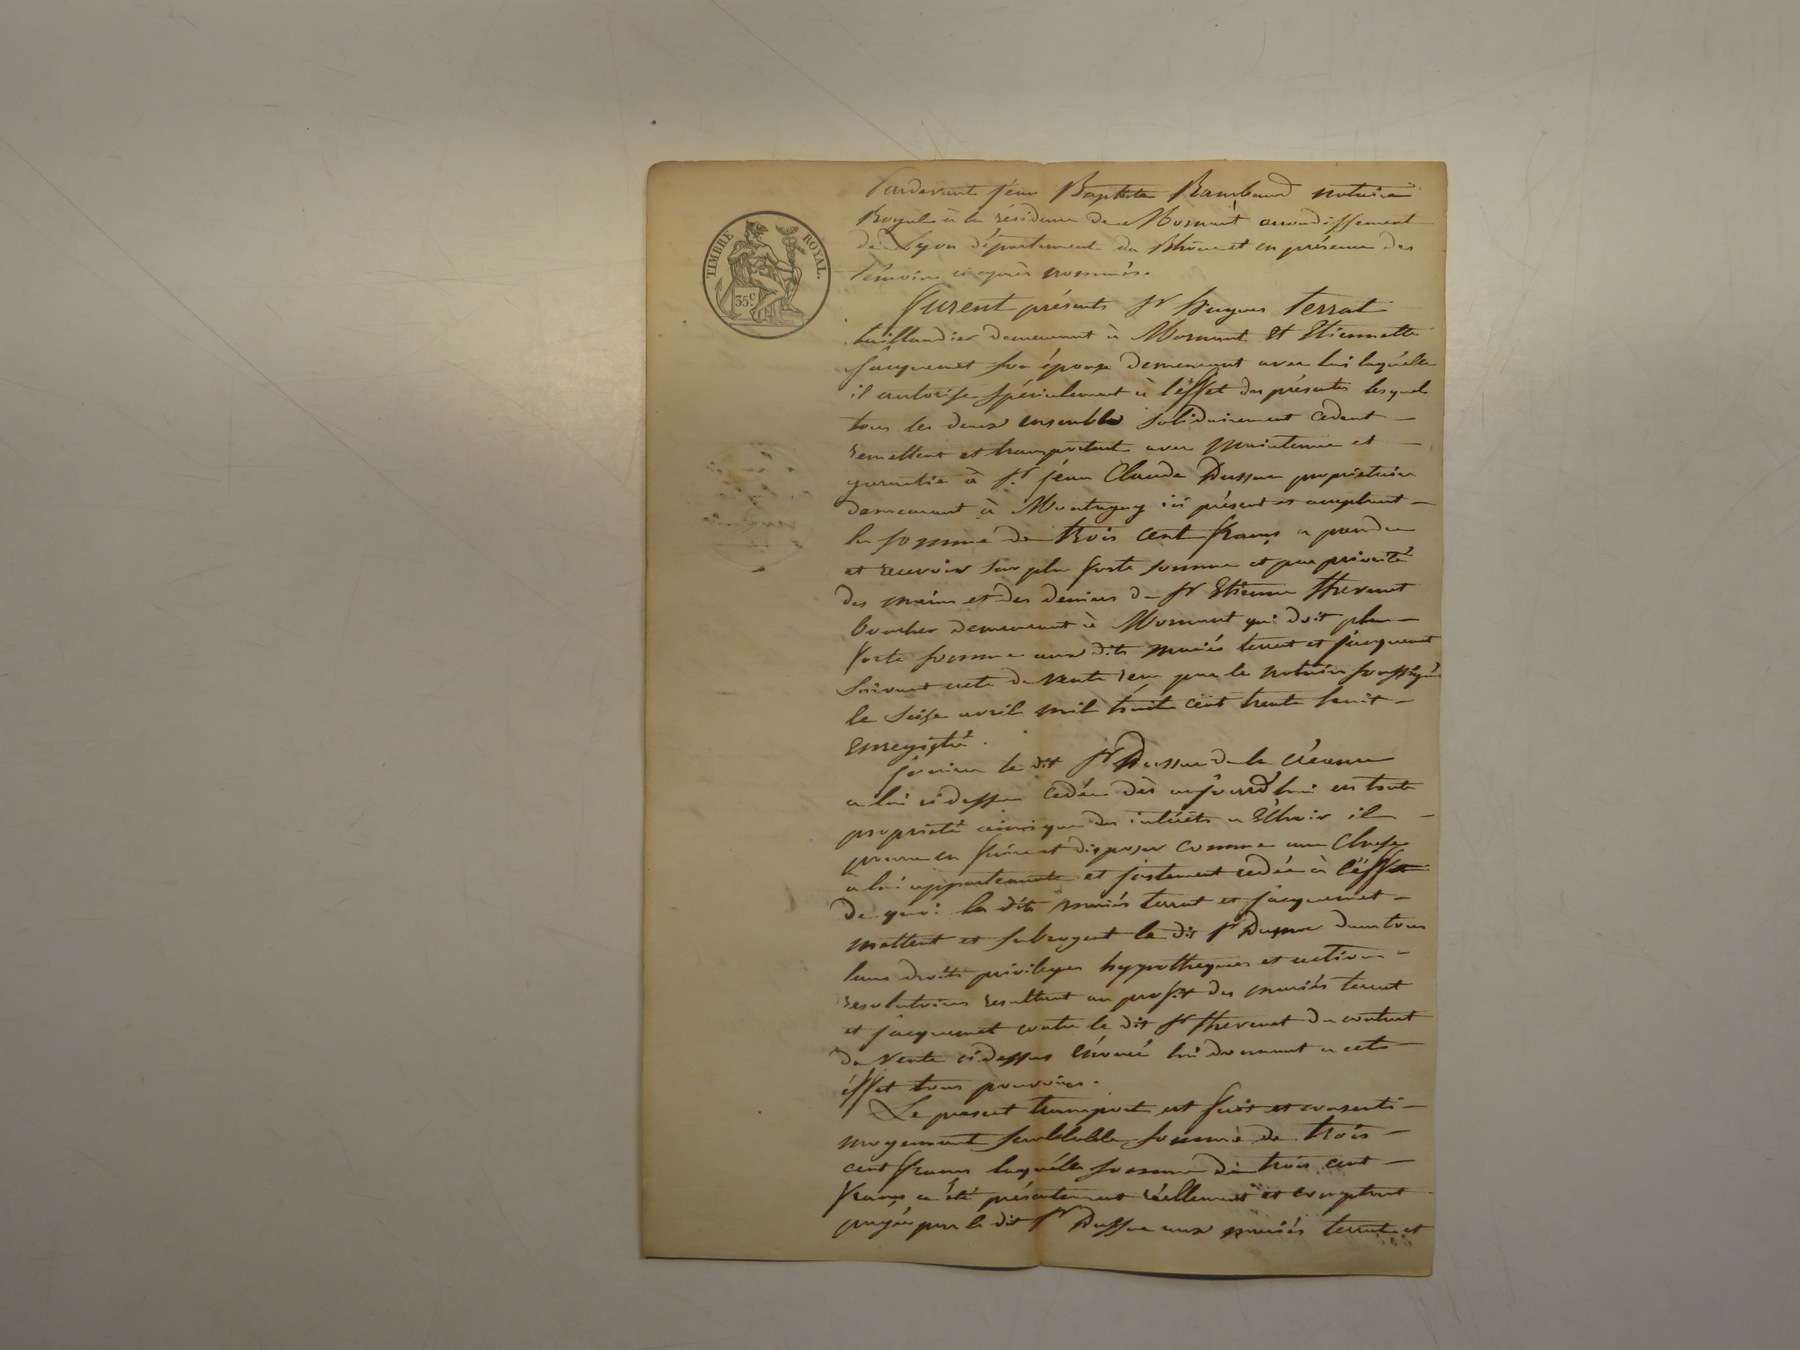 TIMBRE ROYAL.
35c.
Pardevant jéan Baptiste Rambaud notaire
Royal à la résidence de Mornant arrondissement
de Lyon département du Rhône et en présence des
témoins ci après nommés.
Furent présents Sr hugues terrat
taillandier demeurant à Mornant Et Etiennette
jacquemet son épouse demeurant avec lui laquelle
il autorise spécialement à l'éffet des présentes lesquels
tous les deux ensemble solidairement cedent
remettent et transportent avec maintenue et
garantie à Sr. jéan Claude Dussuc propriétaire
demeurant à Montagny ici présent et acceptant
la somme de trois cent francs a prendre
et recevoir sur plus forte somme et par priorité
des mains et des deniers de Sr Etienne thevenet
boucher demeurant à Mornant qui doit plus
forte somme aux dits mariés terrat et jacquemet
suivant acte de vente reçu par le notaire soussigné
le seise avril mil huit cent trente huit
Enregistré.
jouira le dit Sr Dussuc de la créance
a lui ci dessus cedée dès aujourd'hui en toute
propriété ainsi que des intérêts a Echoir il
pourra en faire et disposer comme une chose
à lui appartenante et justement cedée à l'éffet
de quoi les dits mariés terrat et jacquemet
mettent et subrogent le dit Sr Dussuc dans tous
leurs droits privileges hypotheques et actions
resolutoires resultant au profit des mariés terrat
et jacquemet contre le dit Sr thevenet du contrat
de vente ci dessus énoncé lui donnant a cet
éffet tous pouvoirs.
Le present transport est fait et consenti
moyennant semblable somme de trois
cent francs laquelle somme de trois cent
francs a été présentement réellement et comptant
payée par le dit Sr Dussuc aux mariés terrat et